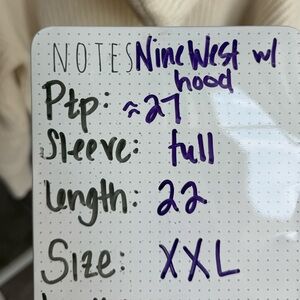 NOTES Nine West w/
hood
Ptp: ≈27
Sleeve: full
Length: 22
Size: XXL